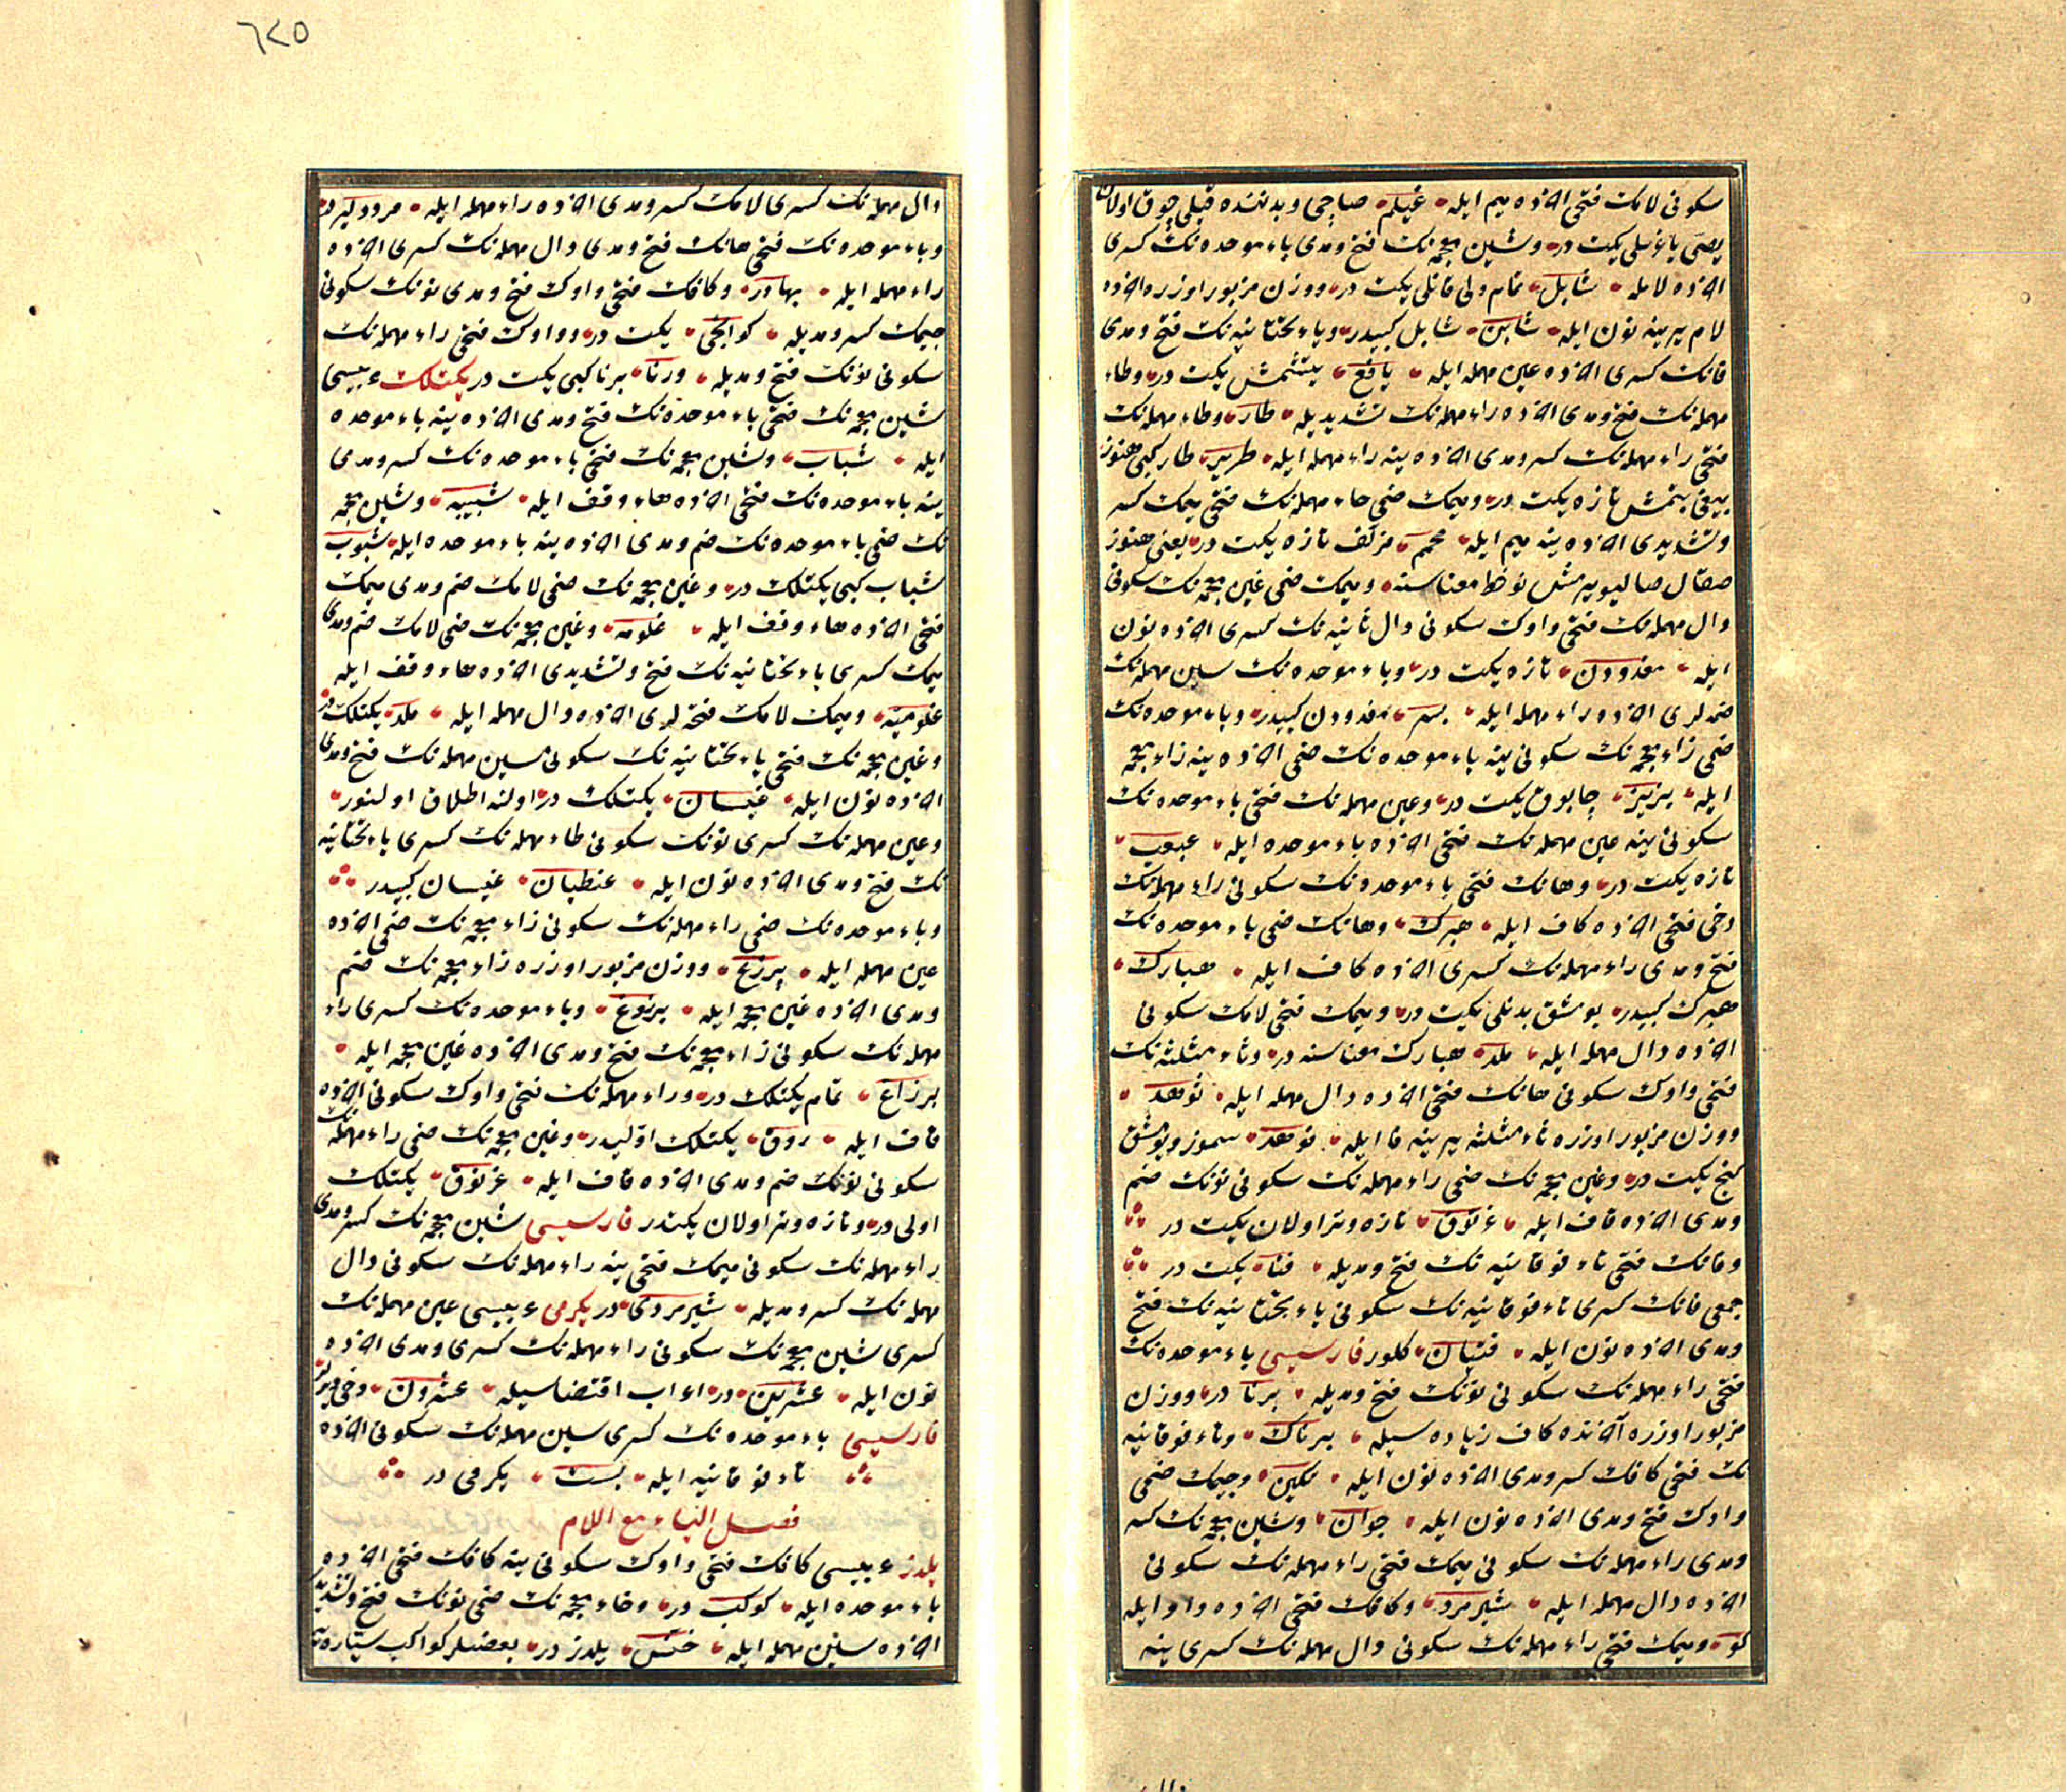 سكونی لامك فتحی آخرده میم ایله غیلم صاچی و بدننده قیلی چوق اولان
یصی یاغلی یكت در و شین معجمه نك فتح و مدی باء موحده نك كسری
آخرده لامله شابل تمام ولی قانلی یكت در و وزن مزبور اوزره آخرده
لام یرینه نون ایله شابن شابل كبیدر و یاء تحتانیه نك فتح و مدی
فانك كسری آخرده عین مهمله ایله یافع یتشمش یكت در و طاء
مهمله نك فتح و مدی آخرده راء مهمله نك تشدیدیله طار و طاء مهمله نك
فتحی راء مهمله نك كسر و مدی آخرده ینه راء مهمله ایله طریر طار كبی هنوز
بیغی بتمش تازه یكت در و میمك ضمی حاء مهمله نك فتحی میمك كسر
و تشدیدی آخرده ینه میم ایله محمم مزلف تازه یكت در یعنی هنوز
صقال صالیویرمش نوخط معناسنه و میمك ضمی غین معجمه نك سكونی
دال مهمله نك فتحی واوك سكونی دال ثانیه نك كسری آخرده نون
ایله مغدودن تازه یكت در و باء موحده نك سین مهمله نك
ضمه لری آخرده راء مهمله ایله بسر مغدودن كبیدر و باء موحده نك
ضمی زاء معجمه نك سكونی ینه باء موحده نك ضمی آخرده ینه زاء معجمه
ایله بزبز چابوق یكت در و عین مهمله نك فتحی باء موحده نك
سكونی ینه عین مهمله نك فتحی آخرده باء موحده ایله عبعب
تازه یكت در و هانك فتحی باء موحده نك سكونی راء مهمله نك
دخی فتحی آخرده كاف ایله هبرك و هانك ضمی باء موحده نك
فتح و مدی راء مهمله نك كسری آخرده كاف ایله هبارك
هبرك كبیدر یومشق بدنلی یكیت در و میمك فتحی لامك سكونی
آخرده دال مهمله ایله ملد هبارك معناسنه در و ثاء مثلثه نك
فتحی واوك سكونی هانك فتحی آخرده دال مهمله ایله ثوهد
و وزن مزبور اوزره ثاء مثلثه یرینه فا ایله فوهد سموز و یومشق
كنج یكت در و غین معجمه نك ضمی راء مهمله نك سكونی نونك ضم
و مدی آخرده قاف ایله غرنوق تازه و تر اولان یكیت در
و فانك فتحی تاء فوقانیه نك فتح و مدیله فتا یكت در
جمعی فانك كسری تاء فوقانیه نك سكونی یاء تحتانیه نك فتح
و مدی آخرده نون ایله فتیان كلور فارسیسی باء موحده نك
فتحی راء مهمله نك سكونی نونك فتح و مدیله برنا در و وزن
مزبور اوزره آخرنده كاف زیاده سیله برناك و تاء فوقانیه
نك فتحی كافك كسر و مدی آخرده نون ایله تكین و جیمك ضمی
واوك فتح و مدی آخرده نون ایله جوان و شین معجمه نك كسر
و مدی راء مهمله نك سكونی میمك فتحی راء مهمله نك سكونی
آخرده دال مهمله ایله شیرمرد و كافك فتحی آخرده واو ایله
كو و میمك فتحی راء مهمله نك سكونی دال مهمله نك كسری ینه
٦٢٥
دال مهمله نك كسری لامك كسر و مدی آخرده راء مهمله ایله مرددلیر
و باء موحده نك فتحی هانك فتح و مدی دال مهمله نك كسری آخرده
راء مهمله ایله بهادر و كافك فتحی واوك فتح و مدی نونك سكونی
جیمك كسر و مدیله كوانجی یكت در و واوك فتحی راء مهمله نك
سكونی نونك فتح و مدیله ورنا برنا كبی یكت در یكتلك عربیسی
شین معجمه نك فتحی باء موحده نك فتح و مدی آخرده ینه باء موحده
ایله شباب و شین معجمه نك فتحی باء موحده نك كسر و مدی
ینه باء موحده نك فتحی آخرده هاء وقف ایله شبیبه و شین معجمه
نك ضمی باء موحده نك ضم و مدی آخرده ینه باء موحده ایله شبوب
شباب كبی یكتلك در و غین معجمه نك ضمی لامك ضم و مدی میمك
فتحی آخرده هاء وقف ایله غلومه و غین معجمه نك ضمی لامك ضم و مدی
میمك كسری یاء تحتانیه نك فتح و تشدیدی آخرده هاء وقف ایله
غلومیه و میمك لامك فتحه لری آخرده دال مهمله ایله ملد یكتلك در
و غین معجمه نك فتحی یاء تحتانیه نك سكونی سین مهمله نك فتح و مدی
آخرده نون ایله غیسان یكتلك در اولنه اطلاق اولنور
و عین مهمله نك كسری نونك سكونی طاء مهمله نك كسری یاء تحتانیه
نك فتح و مدی آخرده نون ایله عنطیان غیسان كبیدر
و باء موحده نك ضمی راء مهمله نك سكونی زاء معجمه نك ضمی آخرده
غین مهمله ایله برزغ و وزن مزبور اوزره زاء معجمه نك ضم
و مدی آخرده غین معجمه ایله برزوغ و باء موحده نك كسری راء
مهمله نك سكونی زاء معجمه نك فتح و مدی آخرده غین معجمه ایله
برزاغ تمام یكتلك در و راء مهمله نك فتحی واوك سكونی آخرده
قاف ایله روق یكتلك اولیدر و غین معجمه نك ضمی راء مهمله نك
سكونی نونك ضم و مدی آخرده قاف ایله غرنوق یكتلك
اولی در و تازه و تر اولان یكتدر فارسیسی شین معجمه نك كسر و مدی
راء مهمله نك سكونی میمك فتحی ینه راء مهمله نك سكونی دال
مهمله نك كسر و مدیله شیرمردی در یكرمی عربیسی عین مهمله نك
كسری شین معجمه نك سكونی راء مهمله نك كسری و مدی آخرده
نون ایله عشرین در اعراب اقتضاسیله عشرون دخی دینور
فارسیسی باء موحده نك كسری سین مهمله نك سكونی آخرده
تاء فوقانیه ایله بست یكرمی در
فصل الیاء مع اللام
یلدز عربیسی كافك فتحی واوك سكونی ینه كافك فتحی آخرده
باء موحده ایله كوكب در و خاء معجمه نك ضمی نونك فتح و تشدیدی
آخرده سین مهمله ایله خنس یلدز در بعضیلر كواكب سیاره